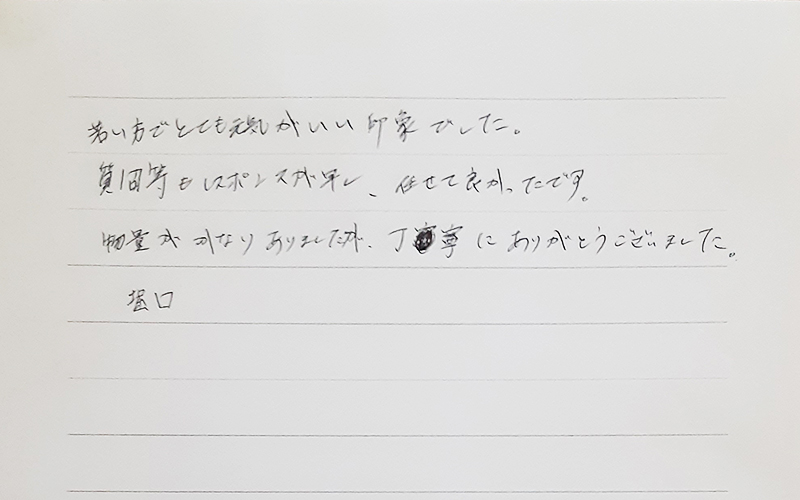 若い方でとても元気がいい印象でした。
質問等もレスポンスが早く、任せて良かったです。
物量がかなりありましたが、丁寧にありがとうございました。
堀口